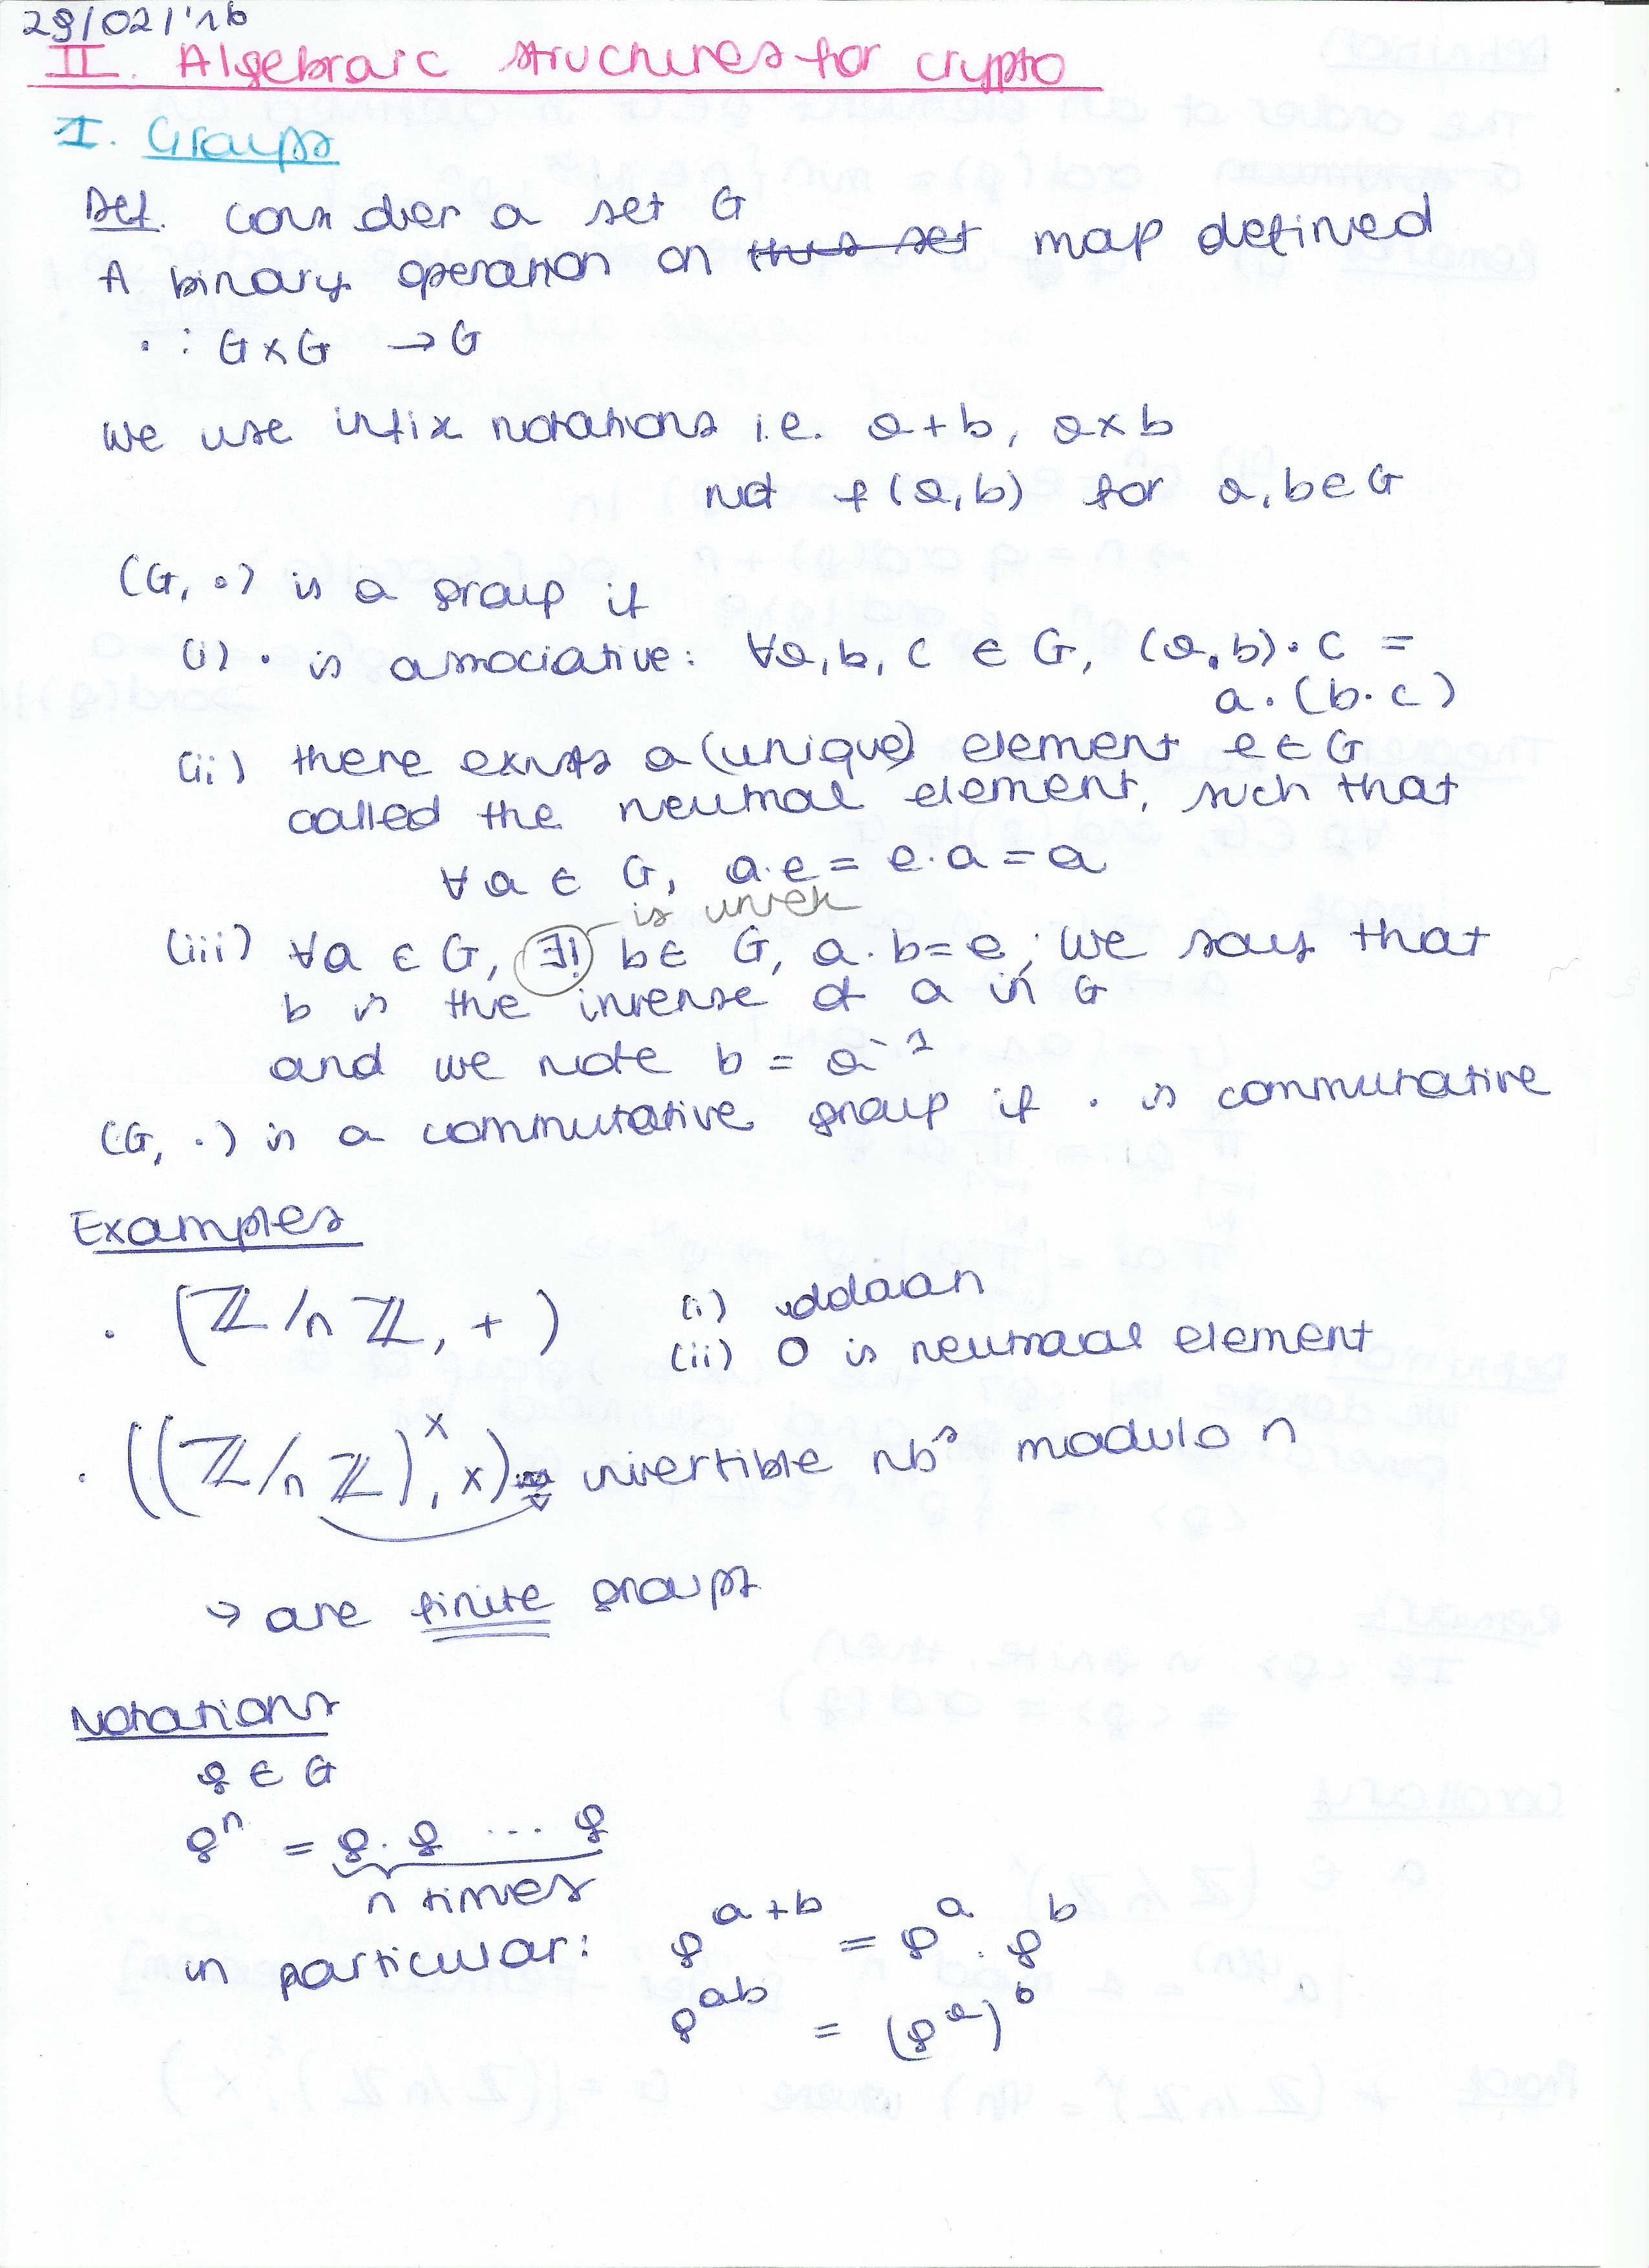 29/02/'16
II. Algebraic structures for crypto
I. Groups
Def. Consider a set G
A binary operation on ~~this set~~ map defined
· : G×G → G
We use infix notations i.e. a+b, a×b
not f(a,b) for a,b∈G
(G, ·) is a group if
(i) · is associative: ∀a,b,c ∈ G, (a.b)·c =
a·(b·c)
(ii) there exists a (unique) element e∈G
called the neutral element, such that
∀a ∈ G, a·e = e·a = a
is
(iii) ∀a ∈ G, ∃! b∈ G, a·b=e; we say that
b is the inverse of a in G
and we note b = a⁻¹
(G, ·) is a commutative group if · is commutative
Examples
· (ℤ/nℤ, +) (i)
(ii) 0 is neutraal element
· ((ℤ/nℤ)ˣ, ×) invertible nbˢ modulo n
→ are finite groups
Notations
g ∈ G
gⁿ = g·g ... g
n times
in particular: g^(a+b) = g^a · g^b
g^(ab) = (g^a)^b